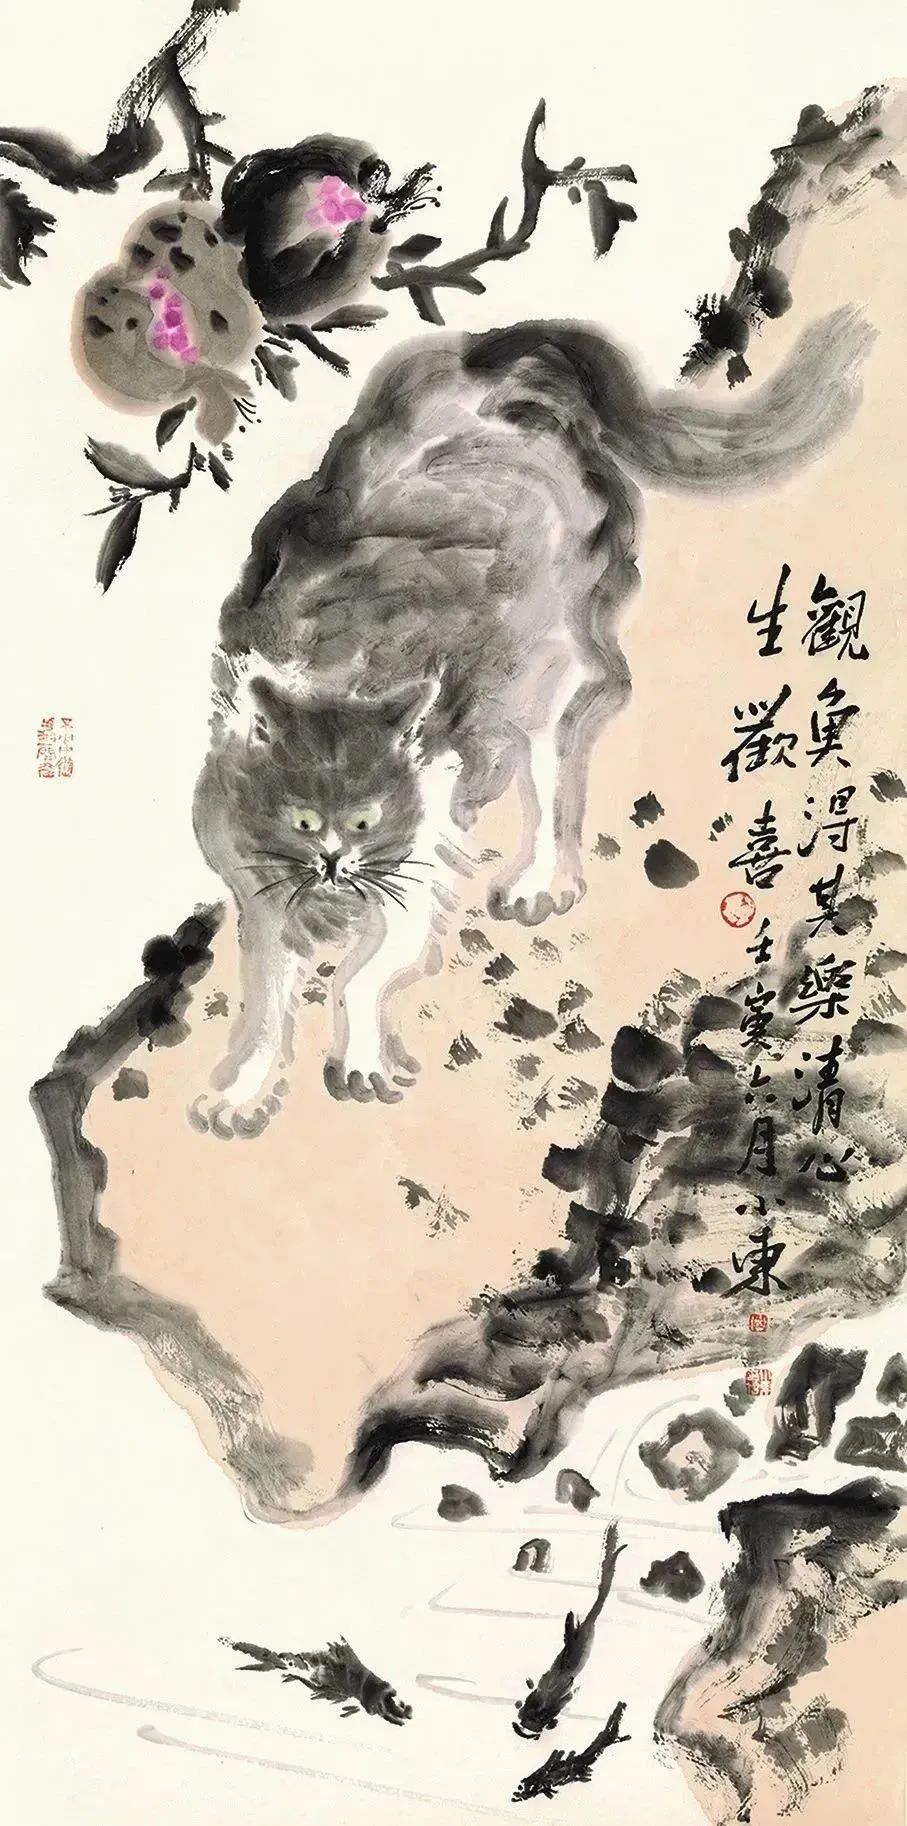 觀魚得其樂清心
生歡喜
壬寅六月小東